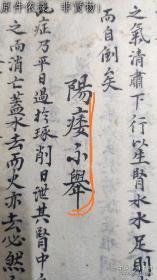 原牛依据 非實物
之氣清肅下行以生腎水水足則
尚自倒矣
陽痿不舉
症乃平日過於琢削日泄其腎中
之尚消亡蓋水去而火亦去必然